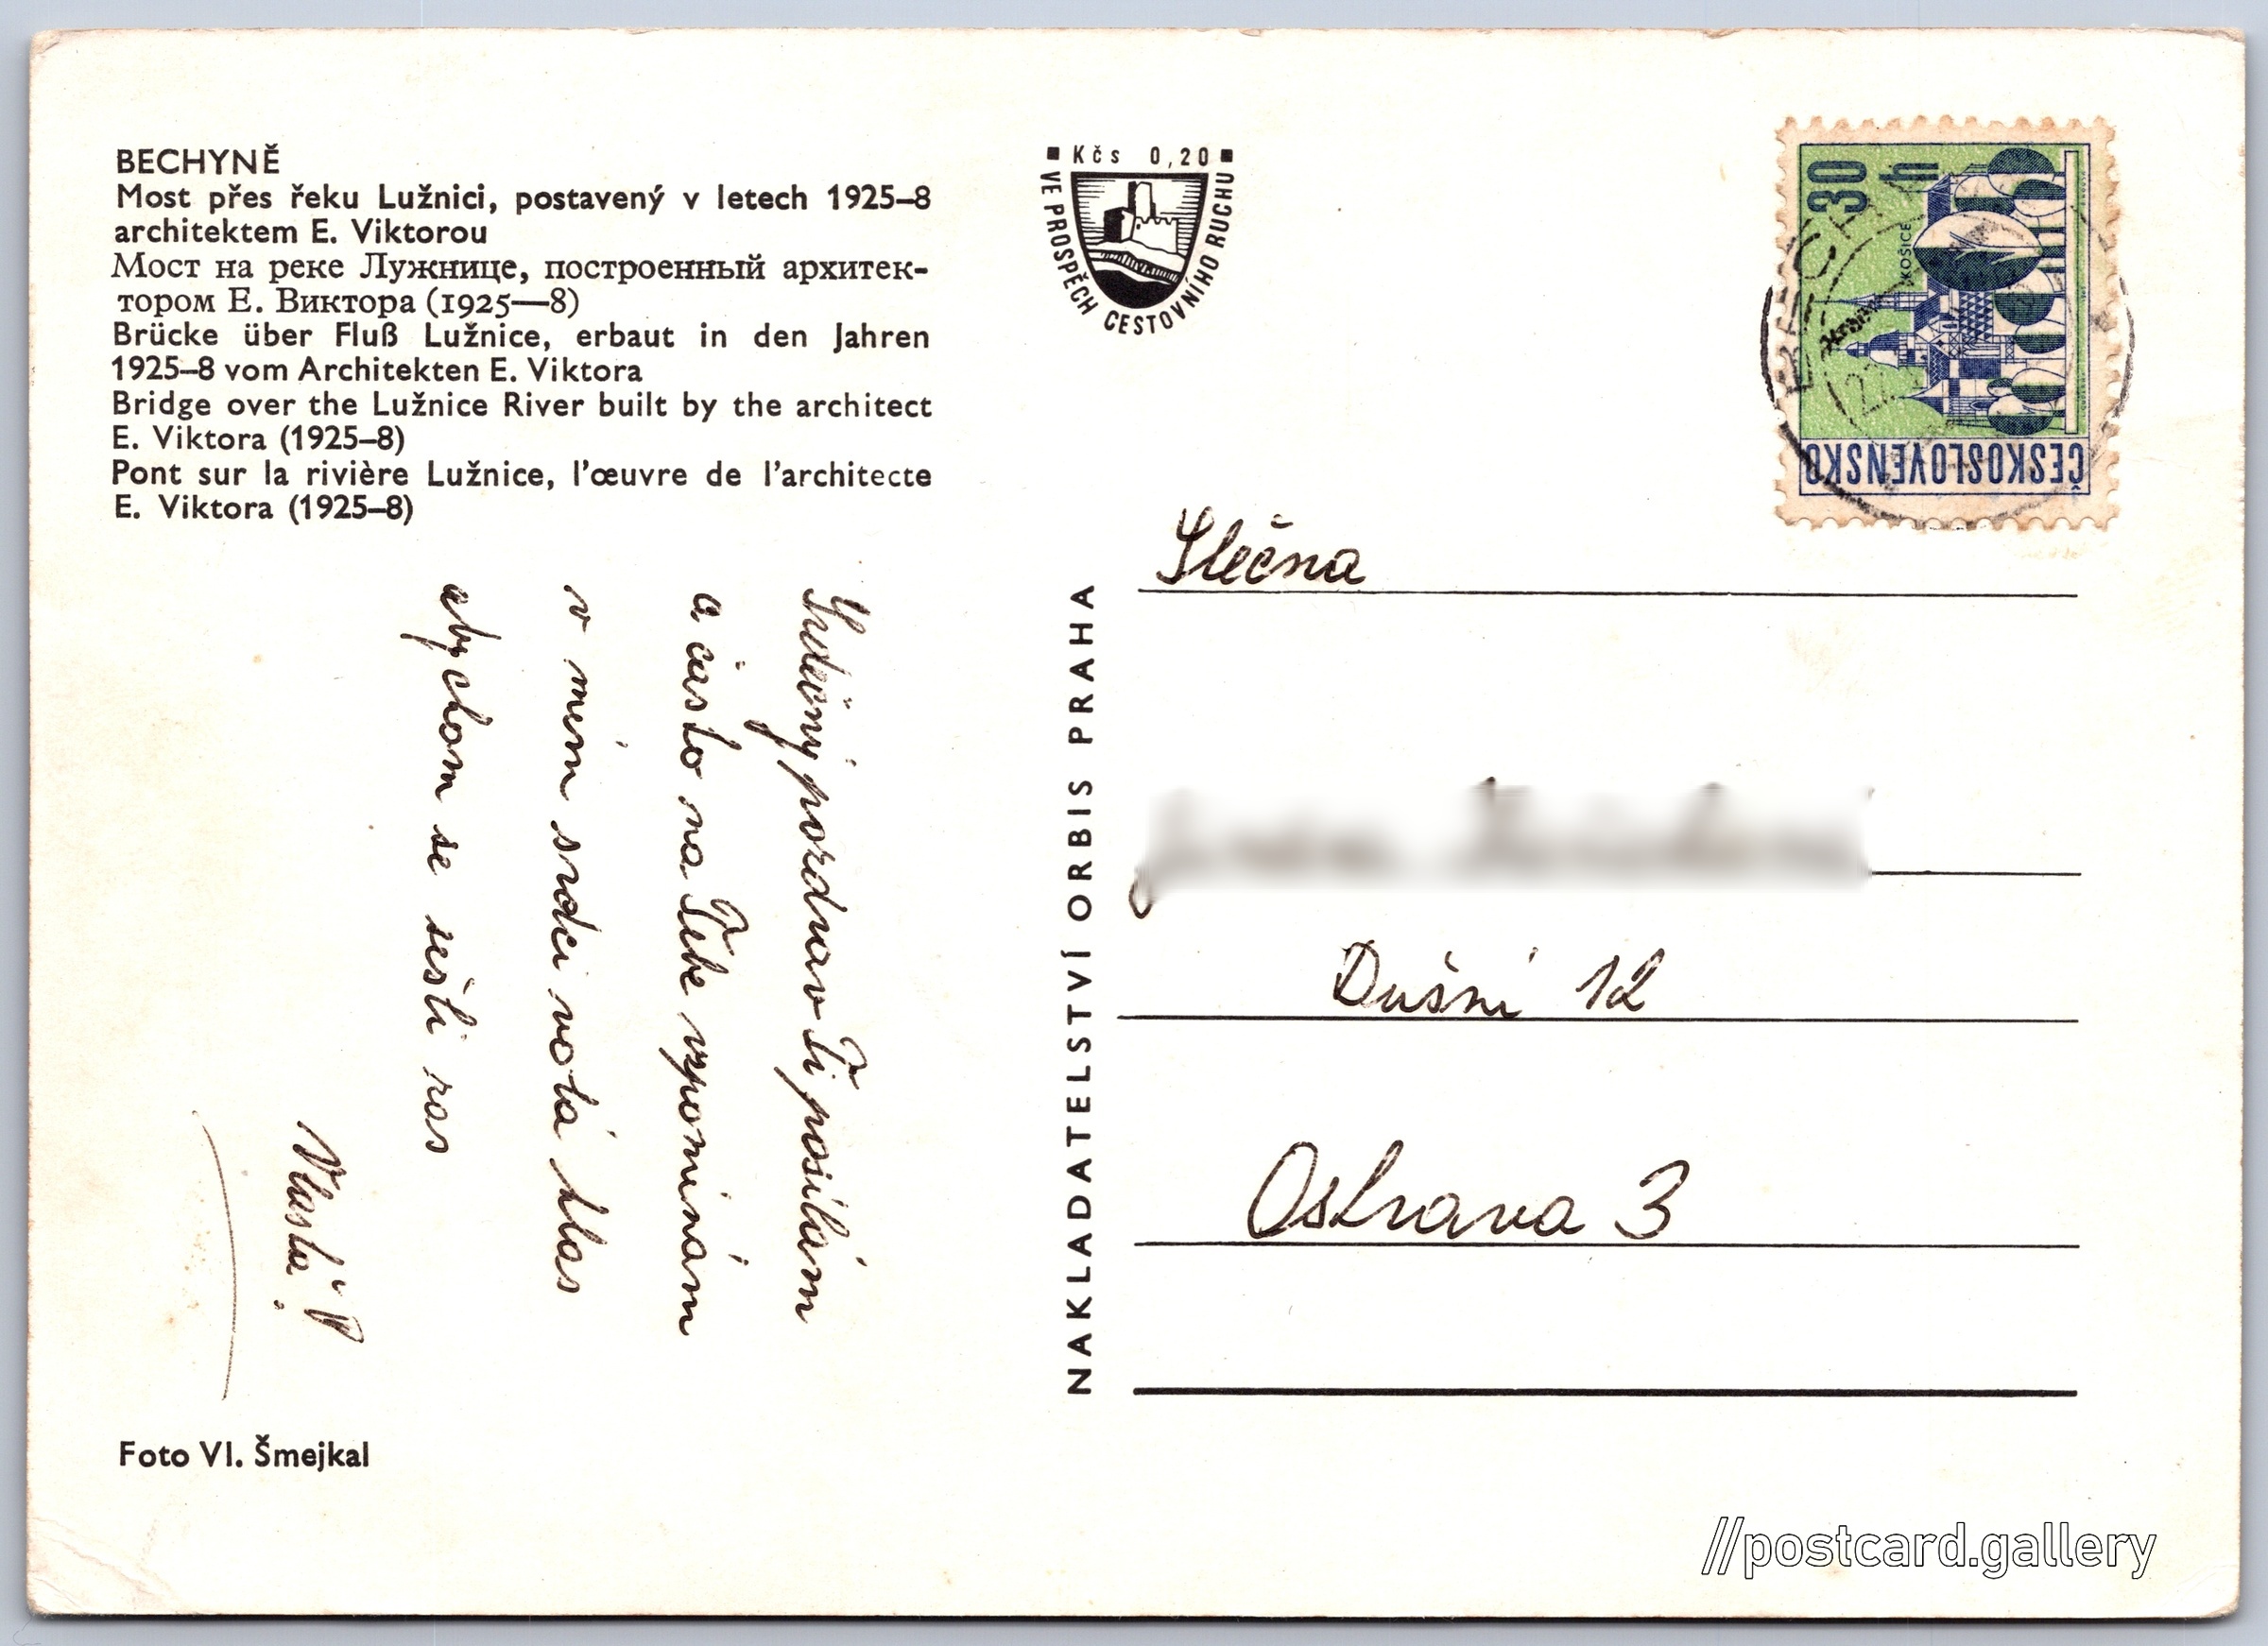 BECHYNĚ
Most přes řeku Lužnici, postavený v letech 1925–8
architektem E. Viktorou
Мост на реке Лужнице, построенный архитек-
тором Е. Виктора (1925—8)
Brücke über Fluß Lužnice, erbaut in den Jahren
1925–8 vom Architekten E. Viktora
Bridge over the Lužnice River built by the architect
E. Viktora (1925–8)
Pont sur la rivière Lužnice, l'œuvre de l'architecte
E. Viktora (1925–8)
Srdečný pozdrav Ti posílám
a často na Tebe vzpomínám
v mém srdci volá hlas
abychom se sešli zas
Vlasta P.
Foto Vl. Šmejkal
Kčs 0,20
VE PROSPĚCH CESTOVNÍHO RUCHU
NAKLADATELSTVÍ ORBIS PRAHA
30 h
KOŠICE
ČESKOSLOVENSKO
BECHY
Slečna
Dušní 12
Ostrava 3
//postcard.gallery